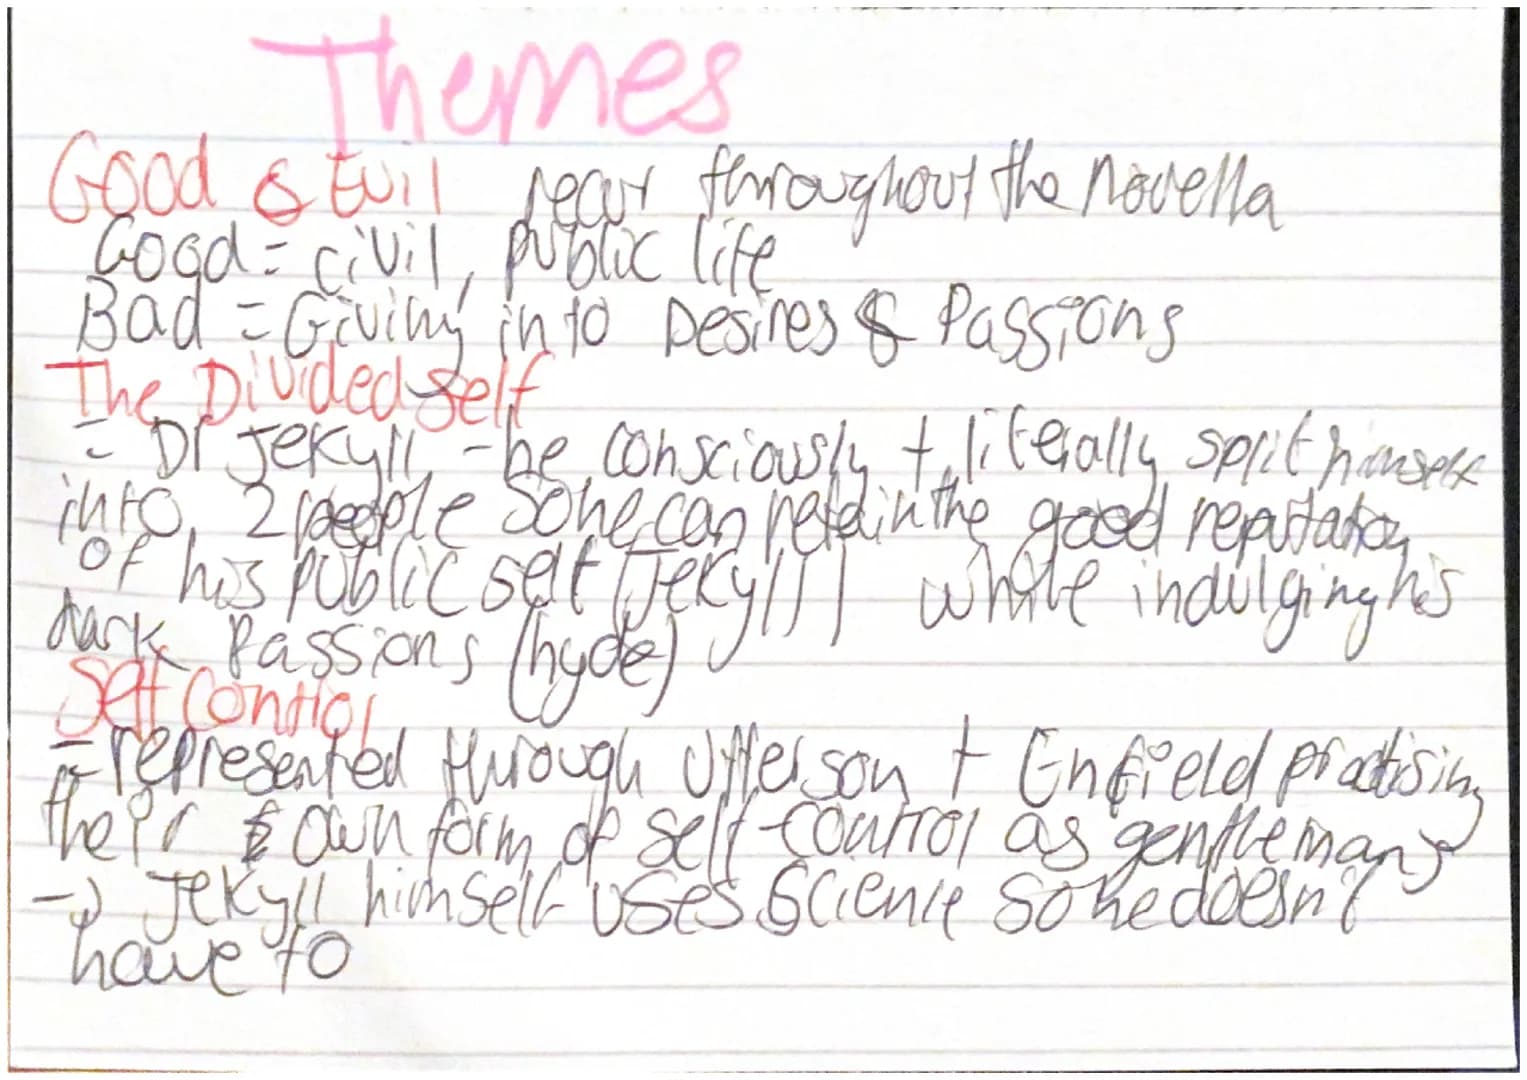 Themes
Good & Evil recur throughout the Novella
Good = civil, public life
Bad = Giving into Desires & Passions
The Divided Self
= Dr Jekyll - he consciously + literally split himself
into 2 people so he can retain the good reputation
of his public self (Jekyll) while indulging his
dark Passions (hyde)
Self Control
- represented through Utterson + Enfield practising
their own form of self-control as gentlemans
-> Jekyll himself uses Science so he doesn't
have to